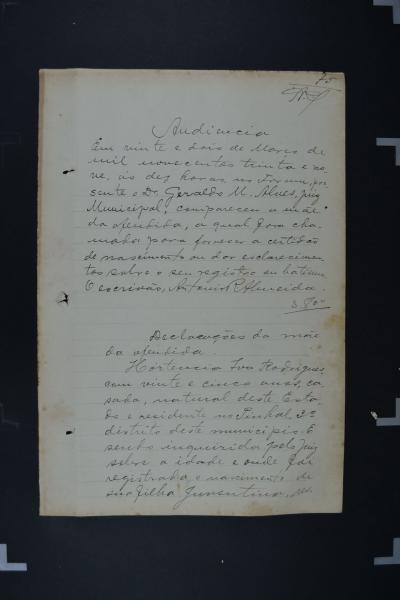 75
Audiencia
Em vinte e dois de Março de
mil novecentos trinta e no-
ve, ás dez horas no Forum, pre-
sente o Dr. Geraldo M. Alves, Juiz
Municipal, compareceu a mãe
da ofendida, a qual fora cha-
mada para fornecer a certidão
de nascimento ou dar esclarecimen-
tos sobre o seu registro ou batismo.
O escrivão, Antonio P. Almeida.
Declarações da mãe
da ofendida.
Hortencia Iva Rodrigues,
com vinte e cinco anos, ca-
sada, natural deste Esta-
do e residente no Pinhal, 3º
distrito deste municipio. E
sendo inquirida pelo Juiz
sobre a idade e onde foi
registrado o nascimento de
sua filha Juventina,